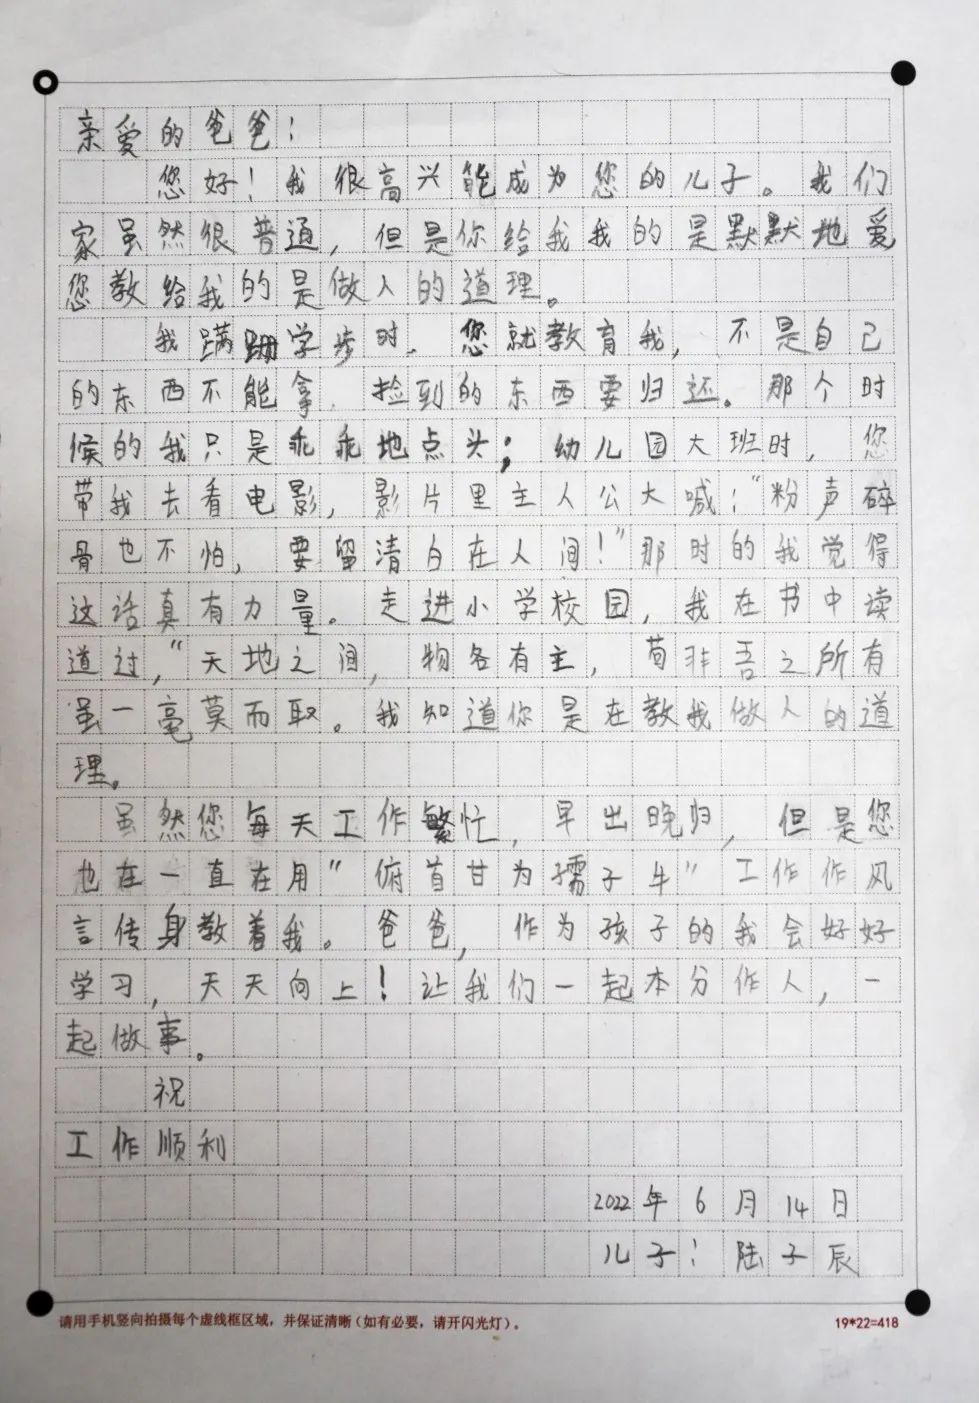 亲爱的爸爸！
您好！我很高兴能成为您的儿子。我们
家虽然很普通，但是你给我我的是默默地爱
您教给我的是做人的道理。
我蹒跚学步时，您就教育我，不是自己
的东西不能拿，捡到的东西要归还。那个时
候的我只是乖乖地点头；幼儿园大班时，您
带我去看电影，影片里主人公大喊：“粉声碎
骨也不怕，要留清白在人间！”那时的我觉得
这话真有力量。走进小学校园，我在书中读
道过，“天地之间，物各有主，苟非吾之所有
虽一毫莫而取。我知道你是在教我做人的道
理。
虽然您每天工作繁忙，早出晚归，但是您
也在一直在用”俯首甘为孺子牛”工作作风
言传身教着我。爸爸，作为孩子的我会好好
学习，天天向上！让我们一起本分作人，一
起做事。
祝
工作顺利
2022年6月14日
儿子：陆子辰
请用手机竖向拍摄每个虚线框区域，并保证清晰（如有必要，请开闪光灯）。
19*22=418